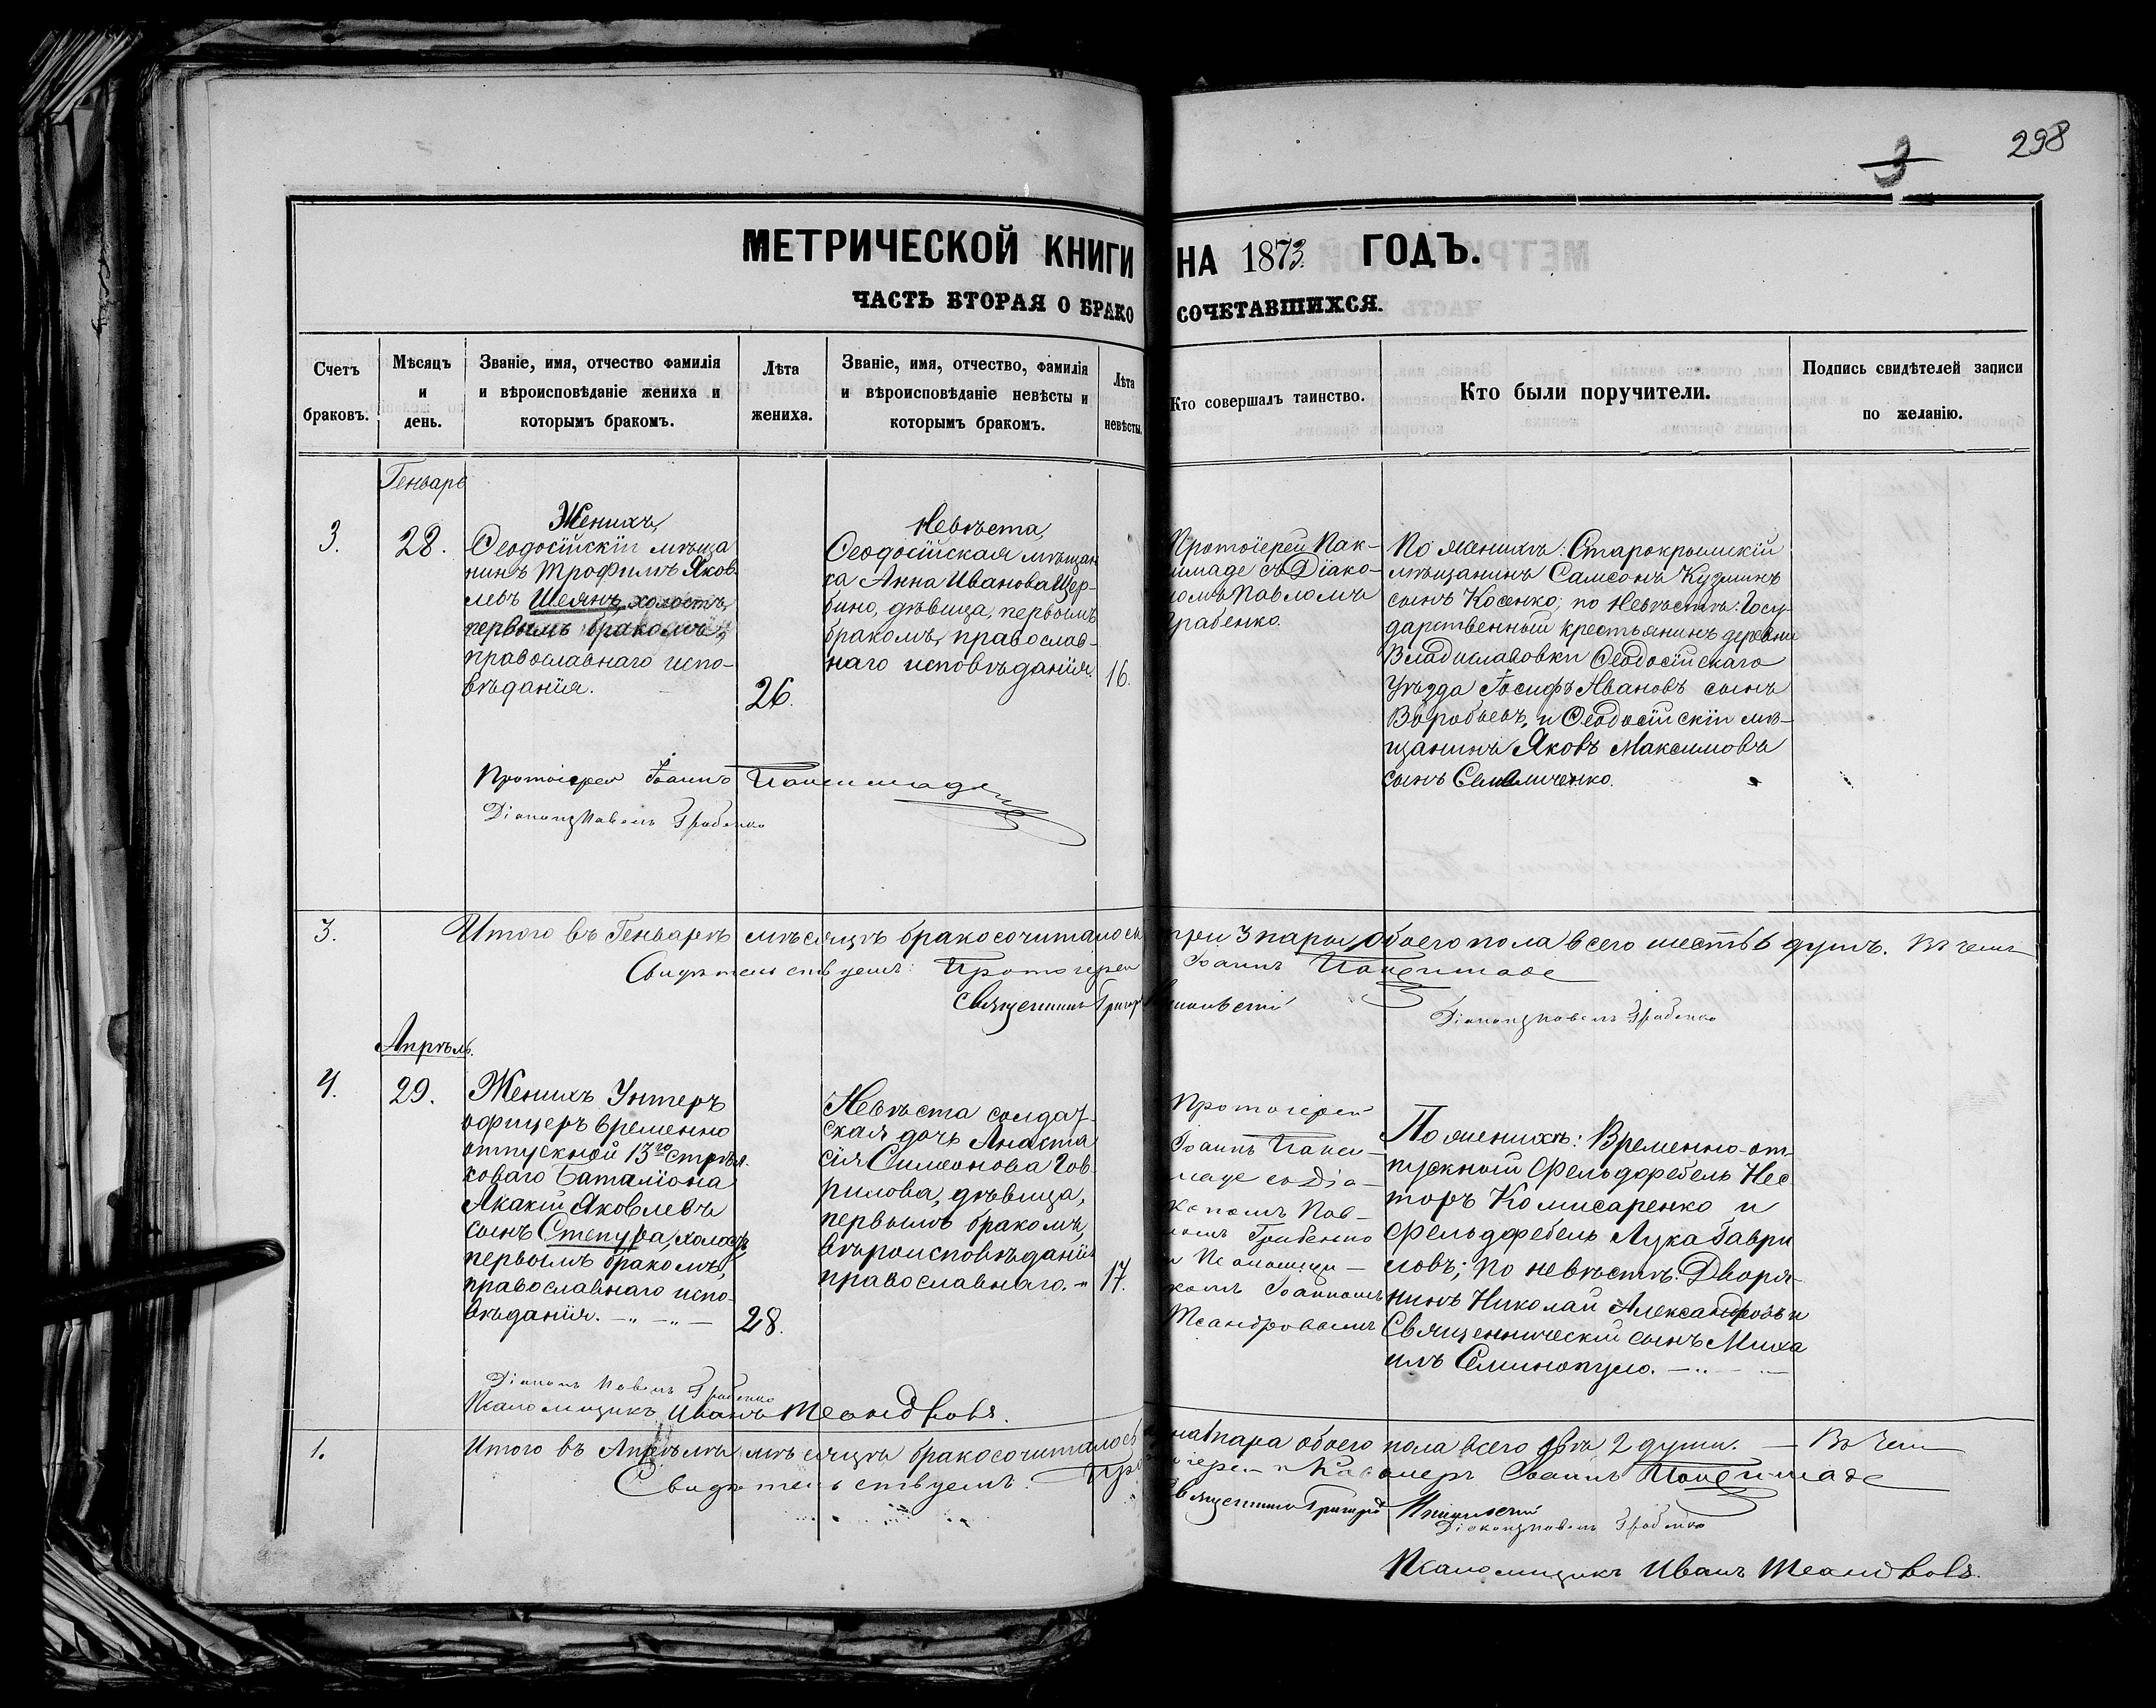 298
3
МЕТРИЧЕСКОЙ КНИГИ НА 1873. ГОДЪ.
ЧАСТЬ ВТОРАЯ О БРАКО СОЧЕТАВШИХСЯ.
Счетъ
браковъ.
Мѣсяцъ
и
день.
Званіе, имя, отчество фамилія
и вѣроисповѣданіе жениха и
которымъ бракомъ.
Лѣта
жениха.
Званіе, имя, отчество, фамилія
и вѣроисповѣданіе невѣсты и
которымъ бракомъ.
Лѣта
невѣсты.
Кто совершалъ таинство.
Кто были поручители.
Подпись свидѣтелей записи
по желанію.
Генварь
3.
28.
Женихъ,
Ѳеодосійскій мѣща
нинъ Трофимъ Яков
левъ Шеянъ, холостъ,
первымъ бракомъ,
православнаго испо-
вѣданія.
26.
Невѣста,
Ѳеодосійская мѣщан
ка Анна Иванова Щер-
бино, дѣвица, первымъ
бракомъ, православ-
наго исповѣданія.
16.
Протоіерей Пак-
симаде съ Діако-
номъ Павломъ
Грабенко.
По женихѣ: Старокрымскій
мѣщанинъ Самсонъ Кузминъ
сынъ Косенко; по Невѣстѣ: Госу-
дарственный крестьянинъ деревни
Владиславовки Ѳеодосійскаго
Уѣзда Іосифъ Ивановъ сынъ
Воробьевъ, и Ѳеодосійскій мѣ-
щанинъ Яковъ Максимовъ
сынъ
Протоіерей Іоаннъ
Діаконъ Павелъ Грабенко
3.
Итого въ Генварѣ мѣсяцѣ бракосочиталось
при 3 пары, обоего пола всего шесть 6 душъ. Въ чемъ
Свидѣтельствуемъ: Протоіерей
Іоаннъ
Священникъ Григор
Діаконъ Павелъ Грабенко
Апрѣль.
4.
29.
Женихъ Унтеръ
офицеръ временно
отпускной 13го стрѣл
коваго Баталіона
Акакій Яковлевъ
сынъ Степура, холостъ,
первымъ бракомъ,
православнаго испо-
вѣданія. — " — " —
28.
Невѣста солдат-
ская дочь Анаста
сія Симеонова Гав
рилова, дѣвица,
первымъ бракомъ,
вѣроисповѣданія
православнаго. "
17.
Протоіерей
Іоаннъ Пакси-
маде со Діа-
кономъ Пав-
ломъ Грабенко
и Псаломщи-
комъ Іоанномъ
Меандровымъ
По женихѣ: Временно-от-
пускный Фельдфебель Нес
торъ Комисаренко и
Фельдфебель Лука Гаври
ловъ; по невѣстѣ: Дворя-
нинъ Николай Александровъ и
Священническій сынъ Миха
илъ
Діаконъ Павелъ Грабенко
Псаломщикъ Иванъ Меандровъ.
1.
Итого въ Апрѣлѣ мѣсяцѣ бракосочиталось
1 пара обоего пола всего двѣ 2 души. — Въ чемъ
Свидѣтельствуемъ:
Кавалеръ Іоаннъ
Священникъ Григорій
Діаконъ Павелъ Грабенко
Псаломщикъ Иванъ Меандровъ.